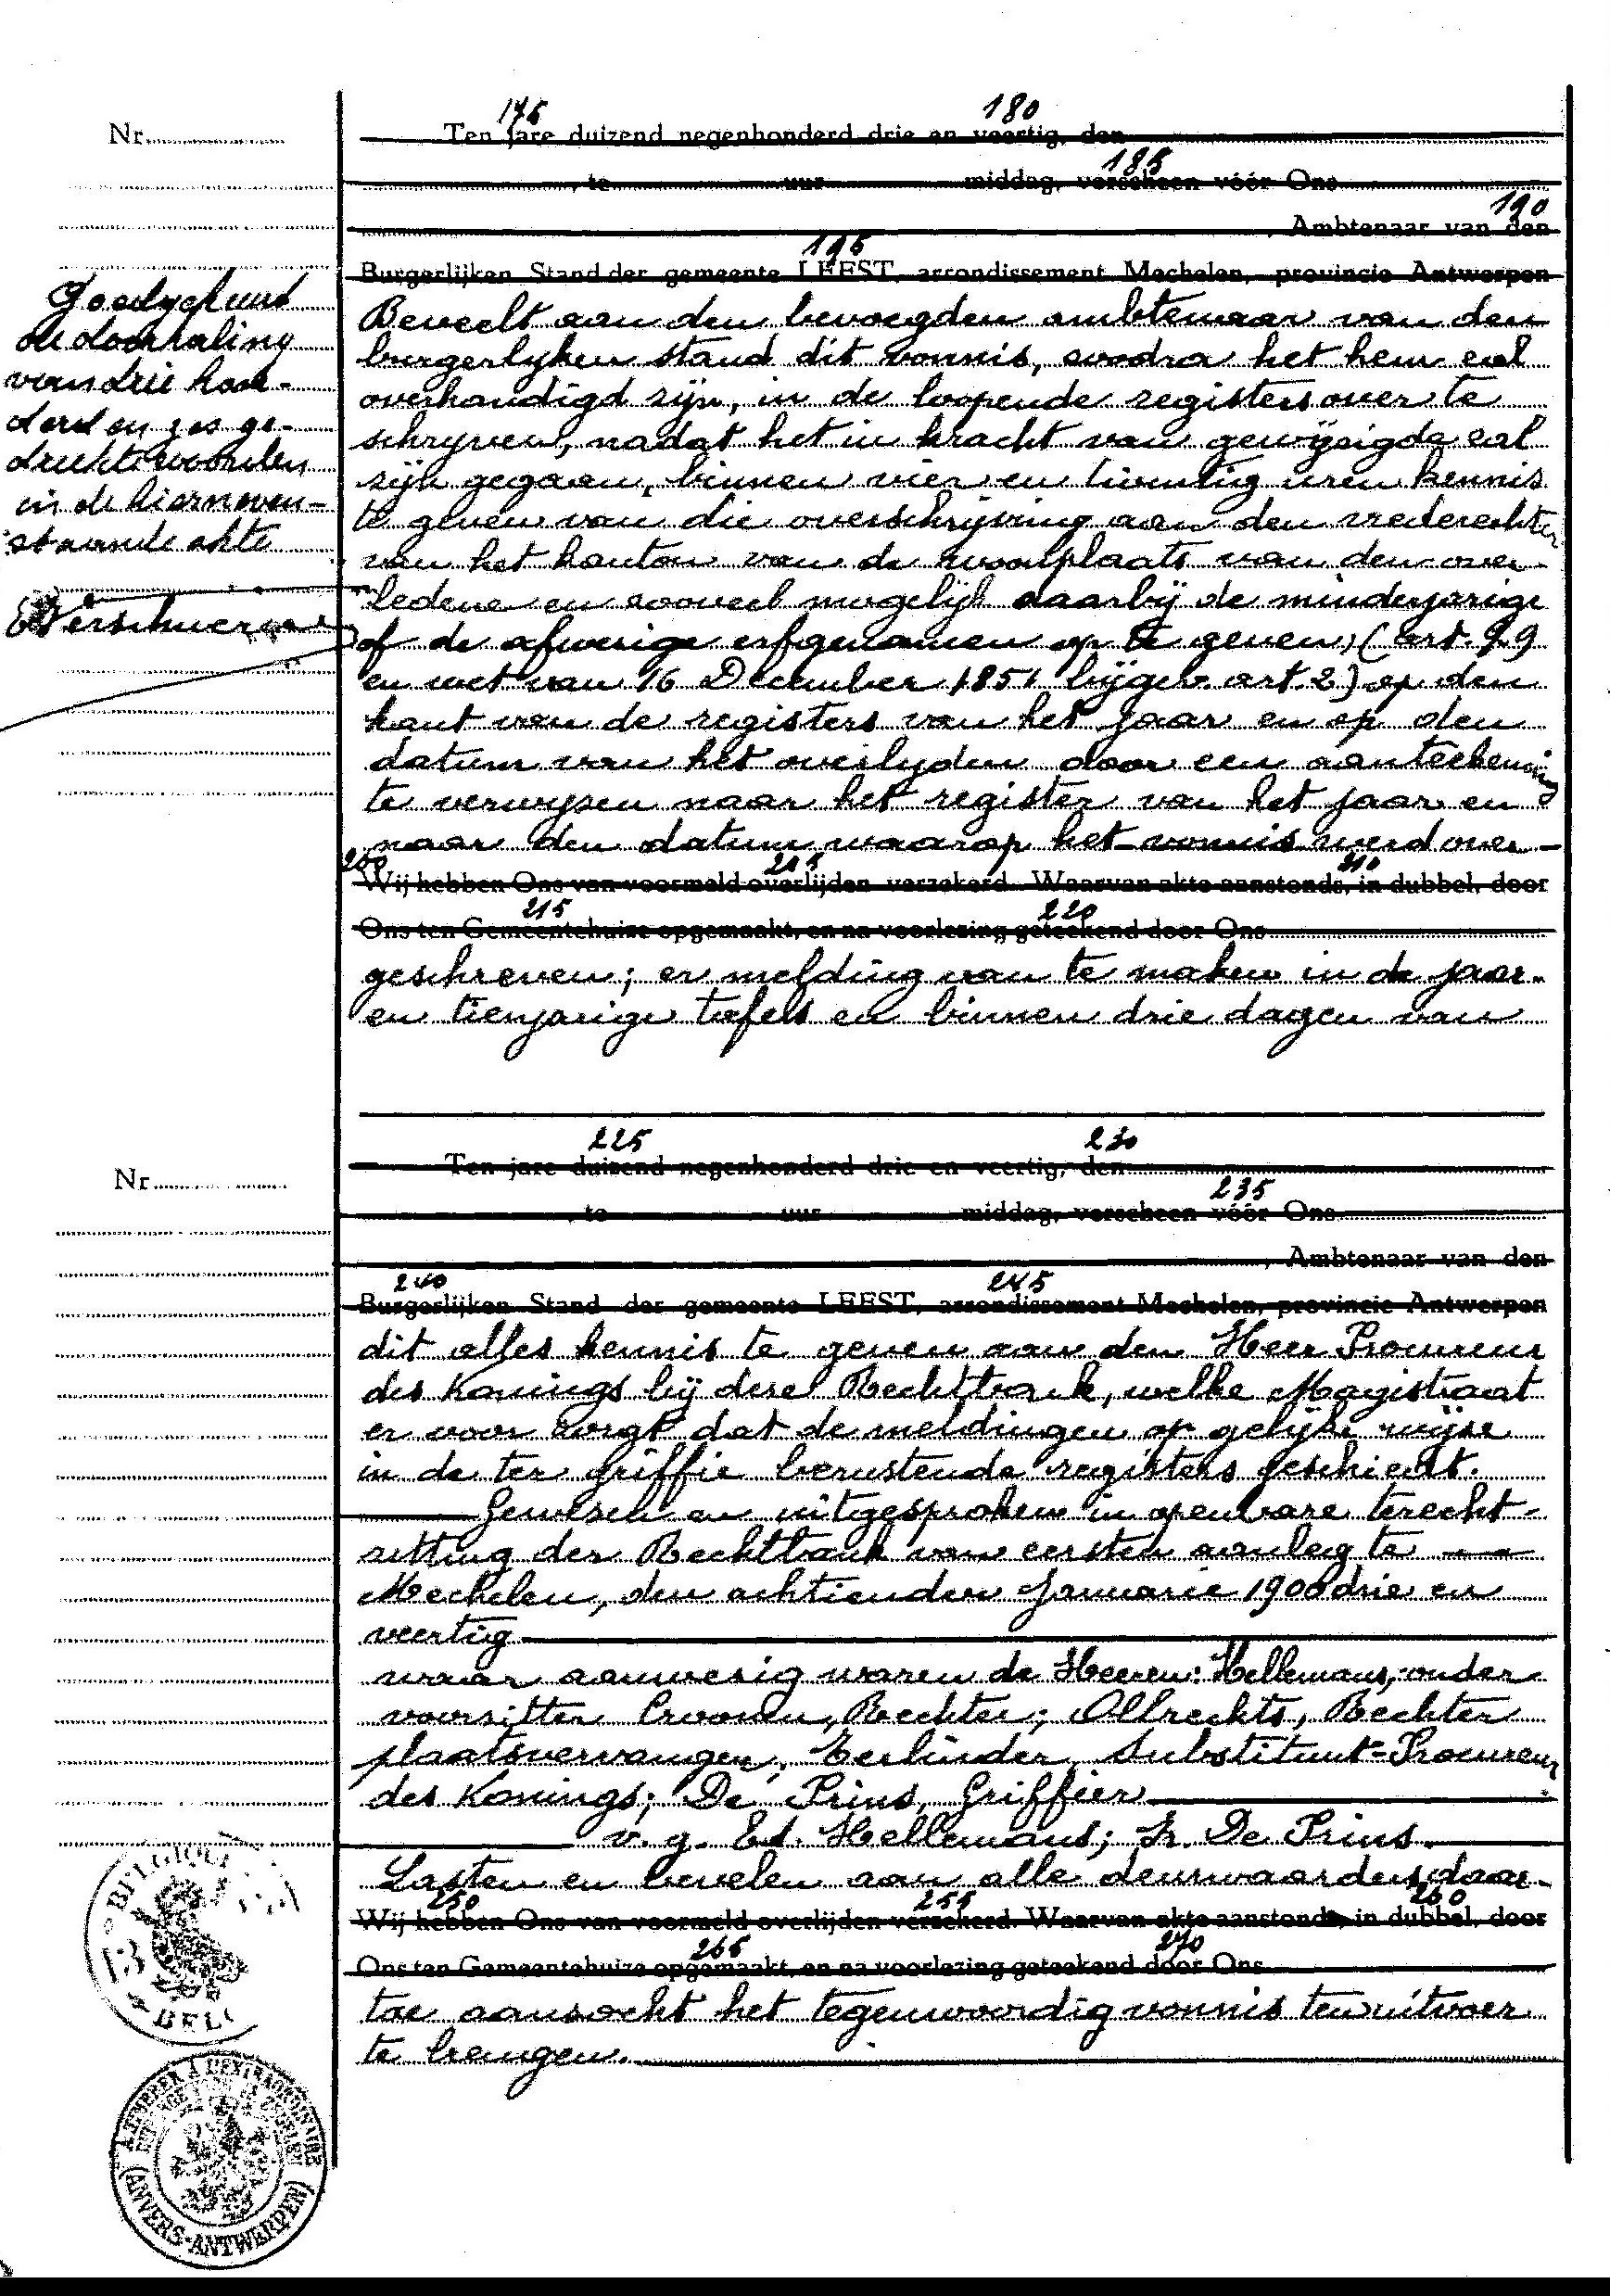 176 180
Nr. Ten jare duizend negenhonderd drie en veertig, den
185
, te uur middag, verscheen vóór Ons
190
, Ambtenaar van den
195
Burgerlijken Stand der gemeente LEEST, arrondissement Mechelen, provincie Antwerpen
Goedgekeurd
de doorhaling
van drie hon-
derd en zes ge-
drukte woorden
in de hierneven-
staande akte
Verschueren
Beveelt aan den bevoegden ambtenaar van den
burgerlyken stand dit vonnis, zoodra het hem zal
overhandigd zijn, in de loopende registers over te
schryven, nadat het in kracht van gewijsigde zal
zijn gegaan, binnen vier en twintig uren kennis
te geven van die overschrijving aan den vrederechter
van het kanton van de woonplaats van den over-
ledene en zooveel mogelijk daarbij de minderjarige
of de afwezige erfgenamen op te geven, (art. 99
en wet van 16 December 1851 bijgev. art. 2) op den
kant van de registers van het jaar en op den
datum van het overlyden door een aanteekening
te verwysen naar het register van het jaar en
naar den datum waarop het vonnis werd over-
200 205 210
Wij hebben Ons van voormeld overlijden verzekerd. Waarvan akte aanstonds, in dubbel, door
215 220
Ons ten Gemeentehuize opgemaakt, en na voorlezing geteekend door Ons
geschreven; er melding van te maken in de jaar-
en tienjarige tafels en binnen drie dagen van
225 230
Nr. Ten jare duizend negenhonderd drie en veertig, den
235
, te uur middag, verscheen vóór Ons
, Ambtenaar van den
240 245
Burgerlijken Stand der gemeente LEEST, arrondissement Mechelen, provincie Antwerpen
dit alles kennis te geven aan den Heer Procureur
des Konings bij deze Rechtbank, welke Magistraat
er voor zorgt dat de meldingen op gelijke wijze
in de ter griffie berustende registers geschiedt.
Gewesen en uitgesproken in openbare terecht-
zitting der Rechtbank van eersten aanleg te
Mechelen, den achtienden Januarie 1900 drie en
veertig
waar aanwezig waren de Heeren: Hellemans, onder
voorzitter Croonen, Rechter; Olbrechts, Rechter
plaatsvervanger; Eerlinder, Substituut-Procureur
des Konings; De Prins, Griffier
v. g. Ed. Hellemans; Fr. De Prins.
Lasten en bevelen aan alle deurwaarders, daar-
250 255 260
Wij hebben Ons van voormeld overlijden verzekerd. Waarvan akte aanstonds, in dubbel, door
265 270
Ons ten Gemeentehuize opgemaakt, en na voorlezing geteekend door Ons
toe aanzocht het tegenwoordig vonnis ten uitvoer
te brengen.
BELGIQUE
BELG
A TIMBRER A L'EXTRAORDINAIRE
(ANVERS-ANTWERPEN)